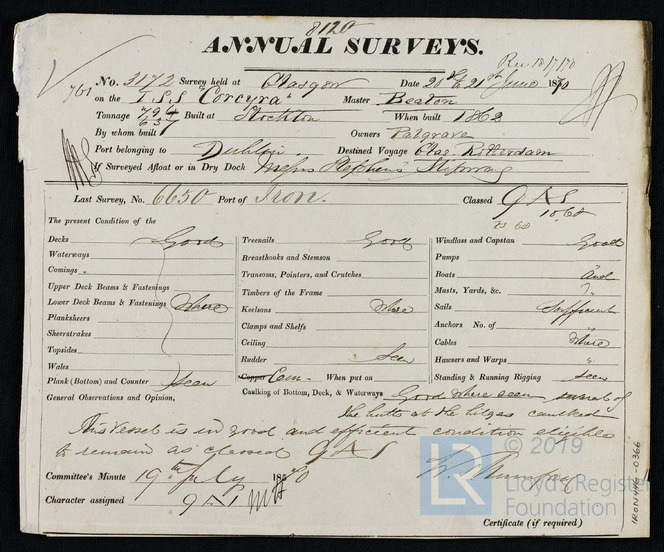 8120
ANNUAL SURVEYS.
Rec 18/7/70
761 No. 3172 Survey held at Glasgow Date 20th & 21st June 1870
on the I.S.S "Corcyra" Master Beaton
Tonnage 794 637 Built at Stockton When built 1862
By whom built Owners Palgrave
Port belonging to Dublin Destined Voyage Glas. Rotterdam
If Surveyed Afloat or in Dry Dock Messrs Stephens Slipway
Last Survey, No. 6650 Port of Iron. Classed 9A1
10.68
The present Condition of the
Decks Good Treenails Good Windlass and Capstan Good
Waterways Breasthooks and Stemson Pumps
Comings Transoms, Pointers, and Crutches Boats and
Upper Deck Beams & Fastenings Timbers of the Frame Masts, Yards, &c.
Lower Deck Beams & Fastenings Where Keelsons Where Sails Sufficient
Planksheers Clamps and Shelfs Anchors No. of
Sheerstrakes Ceiling Cables Where
Topsides Rudder Seen Hawsers and Warps "
Wales Copper Cem. When put on Standing & Running Rigging seen
Plank (Bottom) and Counter Seen Caulking of Bottom, Deck, & Waterways Good where seen several of
General Observations and Opinion, the butts at the bilges caulked
This Vessel is in good and efficient condition eligible
to remain as classed 9A1
Committee's Minute 19th July 1870
Character assigned 9A1
Certificate (if required)
© 2019
LR
Lloyd's Register
Foundation
IRON446-0366